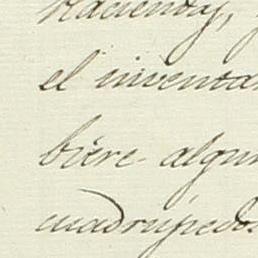 Hacienda,
el inventa
biere algu
cuadrúpedo